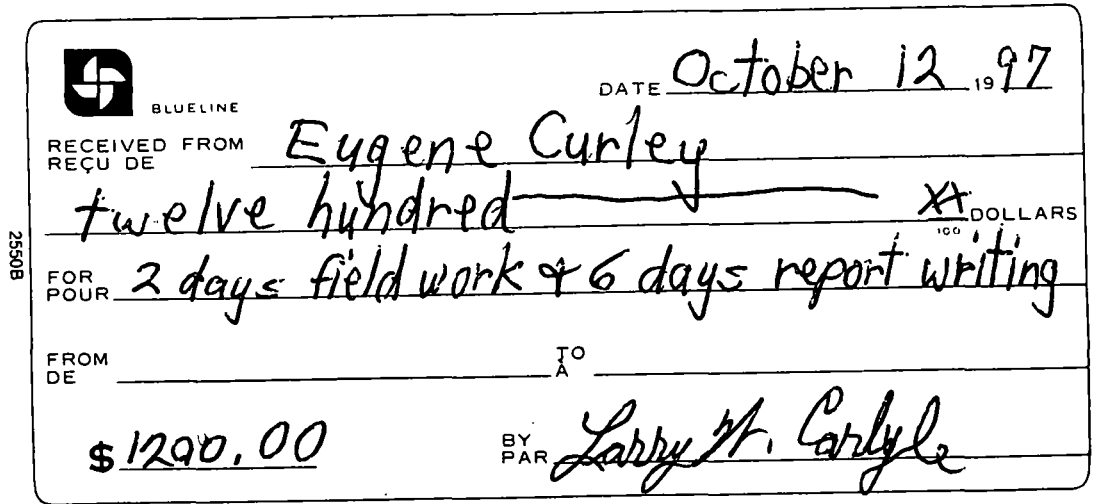 BLUELINE
DATE October 12 19 97
RECEIVED FROM Eugene Curley
REÇU DE
twelve hundred XX/100 DOLLARS
FOR 2 days field work & 6 days report writing
POUR
FROM TO
DE À
$ 1200.00 BY Larry W. Carlyle
PAR
2550B